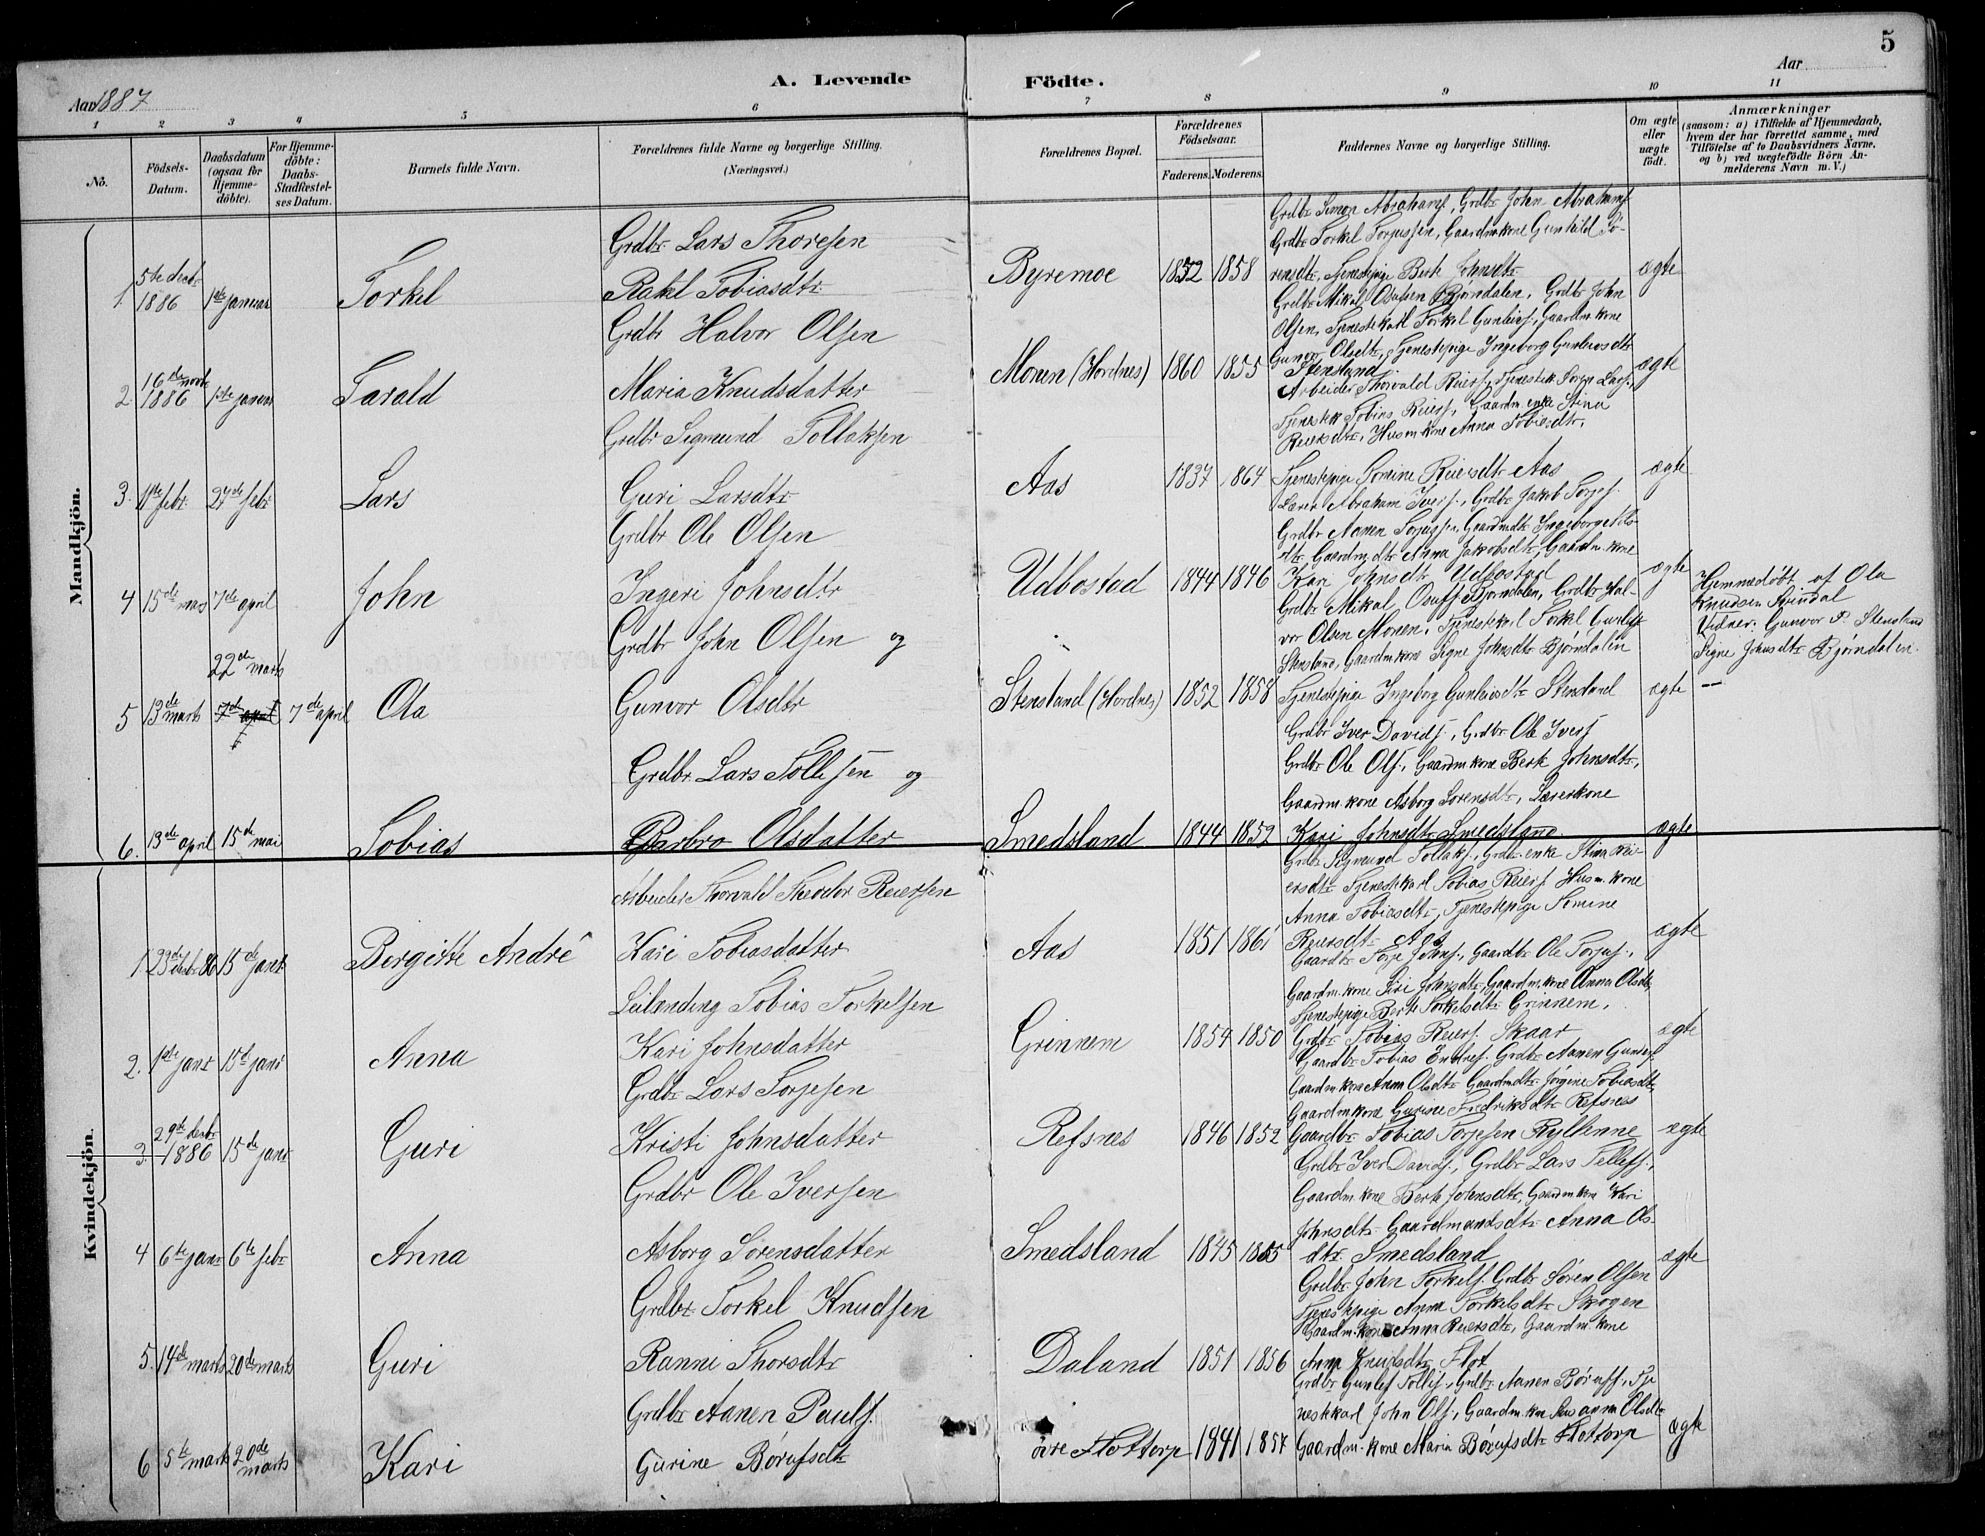 5
A. Levende Födte.
Aar 1887
Aar
1 2 3 4 5 6 7 8 9 10 11
No.
Födsels-Datum.
Daabsdatum (ogsaa for Hjemme-döbte).
For Hjemme-döbte: Daabs-Stadfæstel-ses Datum.
Barnets fulde Navn.
Forældrenes fulde Navne og borgerlige Stilling.
(Næringsvei.)
Forældrenes Bopæl.
Forældrenes Födselsaar.
Faderens. Moderens.
Faddernes Navne og borgerlige Stilling.
Om ægte eller uægte födt.
Anmærkninger
(saasom: a) i Tilfælde af Hjemmedaab,
hvem der har forrettet samme, med
Tilföielse af to Daabsvidners Navne,
og b) ved uægtefödte Börn An-
melderens Navn m. V.)
Mandkjön.
1. 5te decbr 1886 1ste januar Torkel
Grdbr Lars Thoresen
Rakel Tobiasdtr
Byremoe 1852 1858
Grdbr Simon Abrahams., Grdbr John Abrahams.
Grdbr Torkel Torjussen, Gaardmkone Gunhild So-
rensdtr, Tjenestepige Berte Johnsdtr
ægte
2. 16de novbr 1886 1ste januar Tarald
Grdbr Halvor Olsen
Maria Knudsdatter
Monen (Hordnes) 1860 1855
Grdbr Mikal Osufsen Bjørndalen, Grdbr John
Olsen, Tjenestekarl Torkel Gunleifs., Gaardm. kone
Gunvor Olsdtr, Tjenestepige Ingeborg Gunleivsdtr
Stensland
ægte
3. 11te febr. 27de febr Lars
Grdbr Sigmund Tollaksen
Guri Larsdtr
Aas 1837 1864
Arbeider Thorvald Reiers., Tjenestek. Sorin Lars.,
Tjenestek Tobias Reiers., Gaardm. enke Stina
Reiersdtr, Husm kone Anna Tobiasdtr,
Tjenestepige Tomine Reiersdtr Aas
ægte
4 15de mars 7de april John
Grdbr Ole Olsen
Ingeri Johnsdtr
Udbostad 1844 1846
Lærer Abraham Ivers., Grdbr Jakob Torjes.
Grdbr Aanen Torjussen, Gaardmdtr Ingeborg Nils-
dtr. Gaardm. dtr Anna Jakobsdtr, Gaardm. kone
Kari Johnsdtr Udbostad
ægte
5 13de marts 22de marts 7de april 7de april Ola
Grdbr John Olsen og
Gunvor Olsdtr
Stensland (Hordnes) 1852 1858
Grdbr Mikal Osufs. Bjørndalen, Grdbr Hal-
vor Olsen Monen, Tjenestekarl Torkel Gunleifs.
Stensland, Gaardm kone Signe Johnsdtr Bjørndalen
Tjenestepige Ingeborg Gunleivsdtr Stensland
ægte —
Hjemmedøbt af Ola
Knudsen Svindal
Vidner: Gunvor Stensland
Signe Johnsdtr Bjørndalen.
6. 13de april 15de mai Tobias
Grdbr. Lars Tollefsen og
Barbro Olsdatter
Smedsland 1844 1852
Grdbr Iver Davids., Grdbr Ole Ivers
Grdbr Ole Ols., Gaardm. kone Berte Johnsdtr,
Gaardm. kone Asborg Sorensdtr, Lærerkone
Kari Johnsdtr Smedsland
ægte
Kvindekjön.
1 23de decbr 86 15de janr Bergitte Andrè
Arbeider Thorvald Theodor Reiersen
Kari Tobiasdatter
Aas 1851 1861
Grdbr Sigmund Tollaks., Grdbr. enke Stina Rei-
ersdtr Tjenestekarl Tobias Reiers Husm. kone
Anna Tobiasdtr, Tjenestepige Tomine
Reiersdtr Aas
ægte
2. 1ste janr 15d janr Anna
Leilending Tobias Torkelsen
Kari Johnsdatter
Grinnem 1854 1850
Gaardbr Torje Johns., Gaardbr Ole Torjus.,
Gaardm. kone Siri Johnsdtr, Gaardm. kone Anna Olsdtr
Tjenestepige Berte Torkelsdtr Grinnem.
Grdbr Tobias Reiers. Skaar
ægte
3. 29de decbr 1886 15de janr Guri
Grdbr Lars Torjesen
Kristi Johnsdatter
Refsnes 1846 1852
Gaardbr Tobias Endres. Grdbr Aanen Gunders.
Gaardm. kone Anna Olsdtr Gaardmdtr Jørgine Tobiasdtr,
Gaardm kone Gurine Fredriksdtr Refsnes
Gaardbr Tobias Torjesen Ryllenne
ægte
4 6te janr 6te febr Anna
Grdbr Ole Iversen
Asborg Sørensdatter
Smedsland 1845 1855
Grdbr Iver Davids., Grdbr Lars Tellefs.,
Gaardm. kone Berte Johnsdtr, Gaardm kone Kari
Johnsdtr Gaardmandsdtr Anna Ols-
dtr. Smedsland
ægte
5. 14de marts 20de marts Guri
Grdbr Torkel Knudsen
Ranni Thorsdtr
Daland 1851 1856
Grdbr John Torkels. Grdbr Søren Olsen
Tjenestepige Anna Torkelsdtr Skogen
Gaardm. kone Anna Reiersdtr, Gaardm. kone
Anna Knudsdtr Flot
ægte
6 5te marts 20de marts Kari
Grdbr Aanen Pauls.
Gurine Børufsdtr
övre Flottorp 1841 1857
Grdbr Gunlef Tollefs., Grdbr Aanen Børufs., Tje
nestekarl John Ols., Gaardm. kone Susanna Olsdtr
Gaardm. kone Maria Børufsdtr Flottorp
ægte